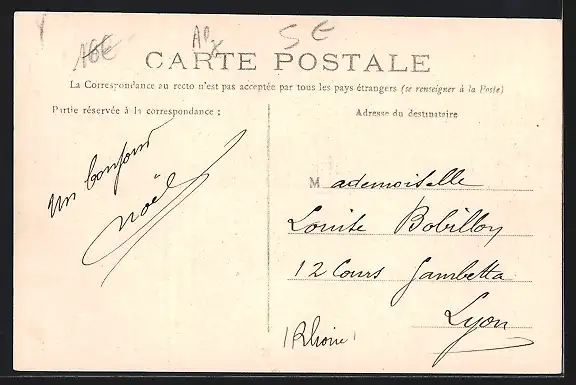 AGE
5 E
CARTE POSTALE
La Correspondance au recto n'est pas acceptée par tous les pays étrangers (se renseigner à la Poste)
Partie réservée à la correspondance :
Un bonjour
Noël
Adresse du destinataire
Mademoiselle
Louise Bobillon
12 Cours Gambetta
Lyon
(Rhône)